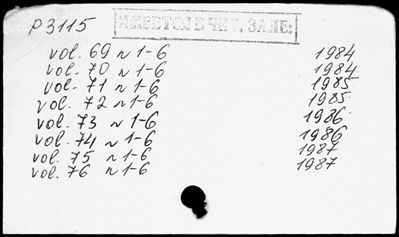 р3115
ИМЕЕТСЯ В ЧИТ. ЗАЛЕ:
vol. 69 n 1-6 1984
vol. 70 n 1-6 1984
vol. 71 n 1-6 1985
vol. 72 n 1-6 1985
vol. 73 n 1-6 1986
vol. 74 n 1-6 1986
vol. 75 n 1-6 1987
vol. 76 n 1-6 1987